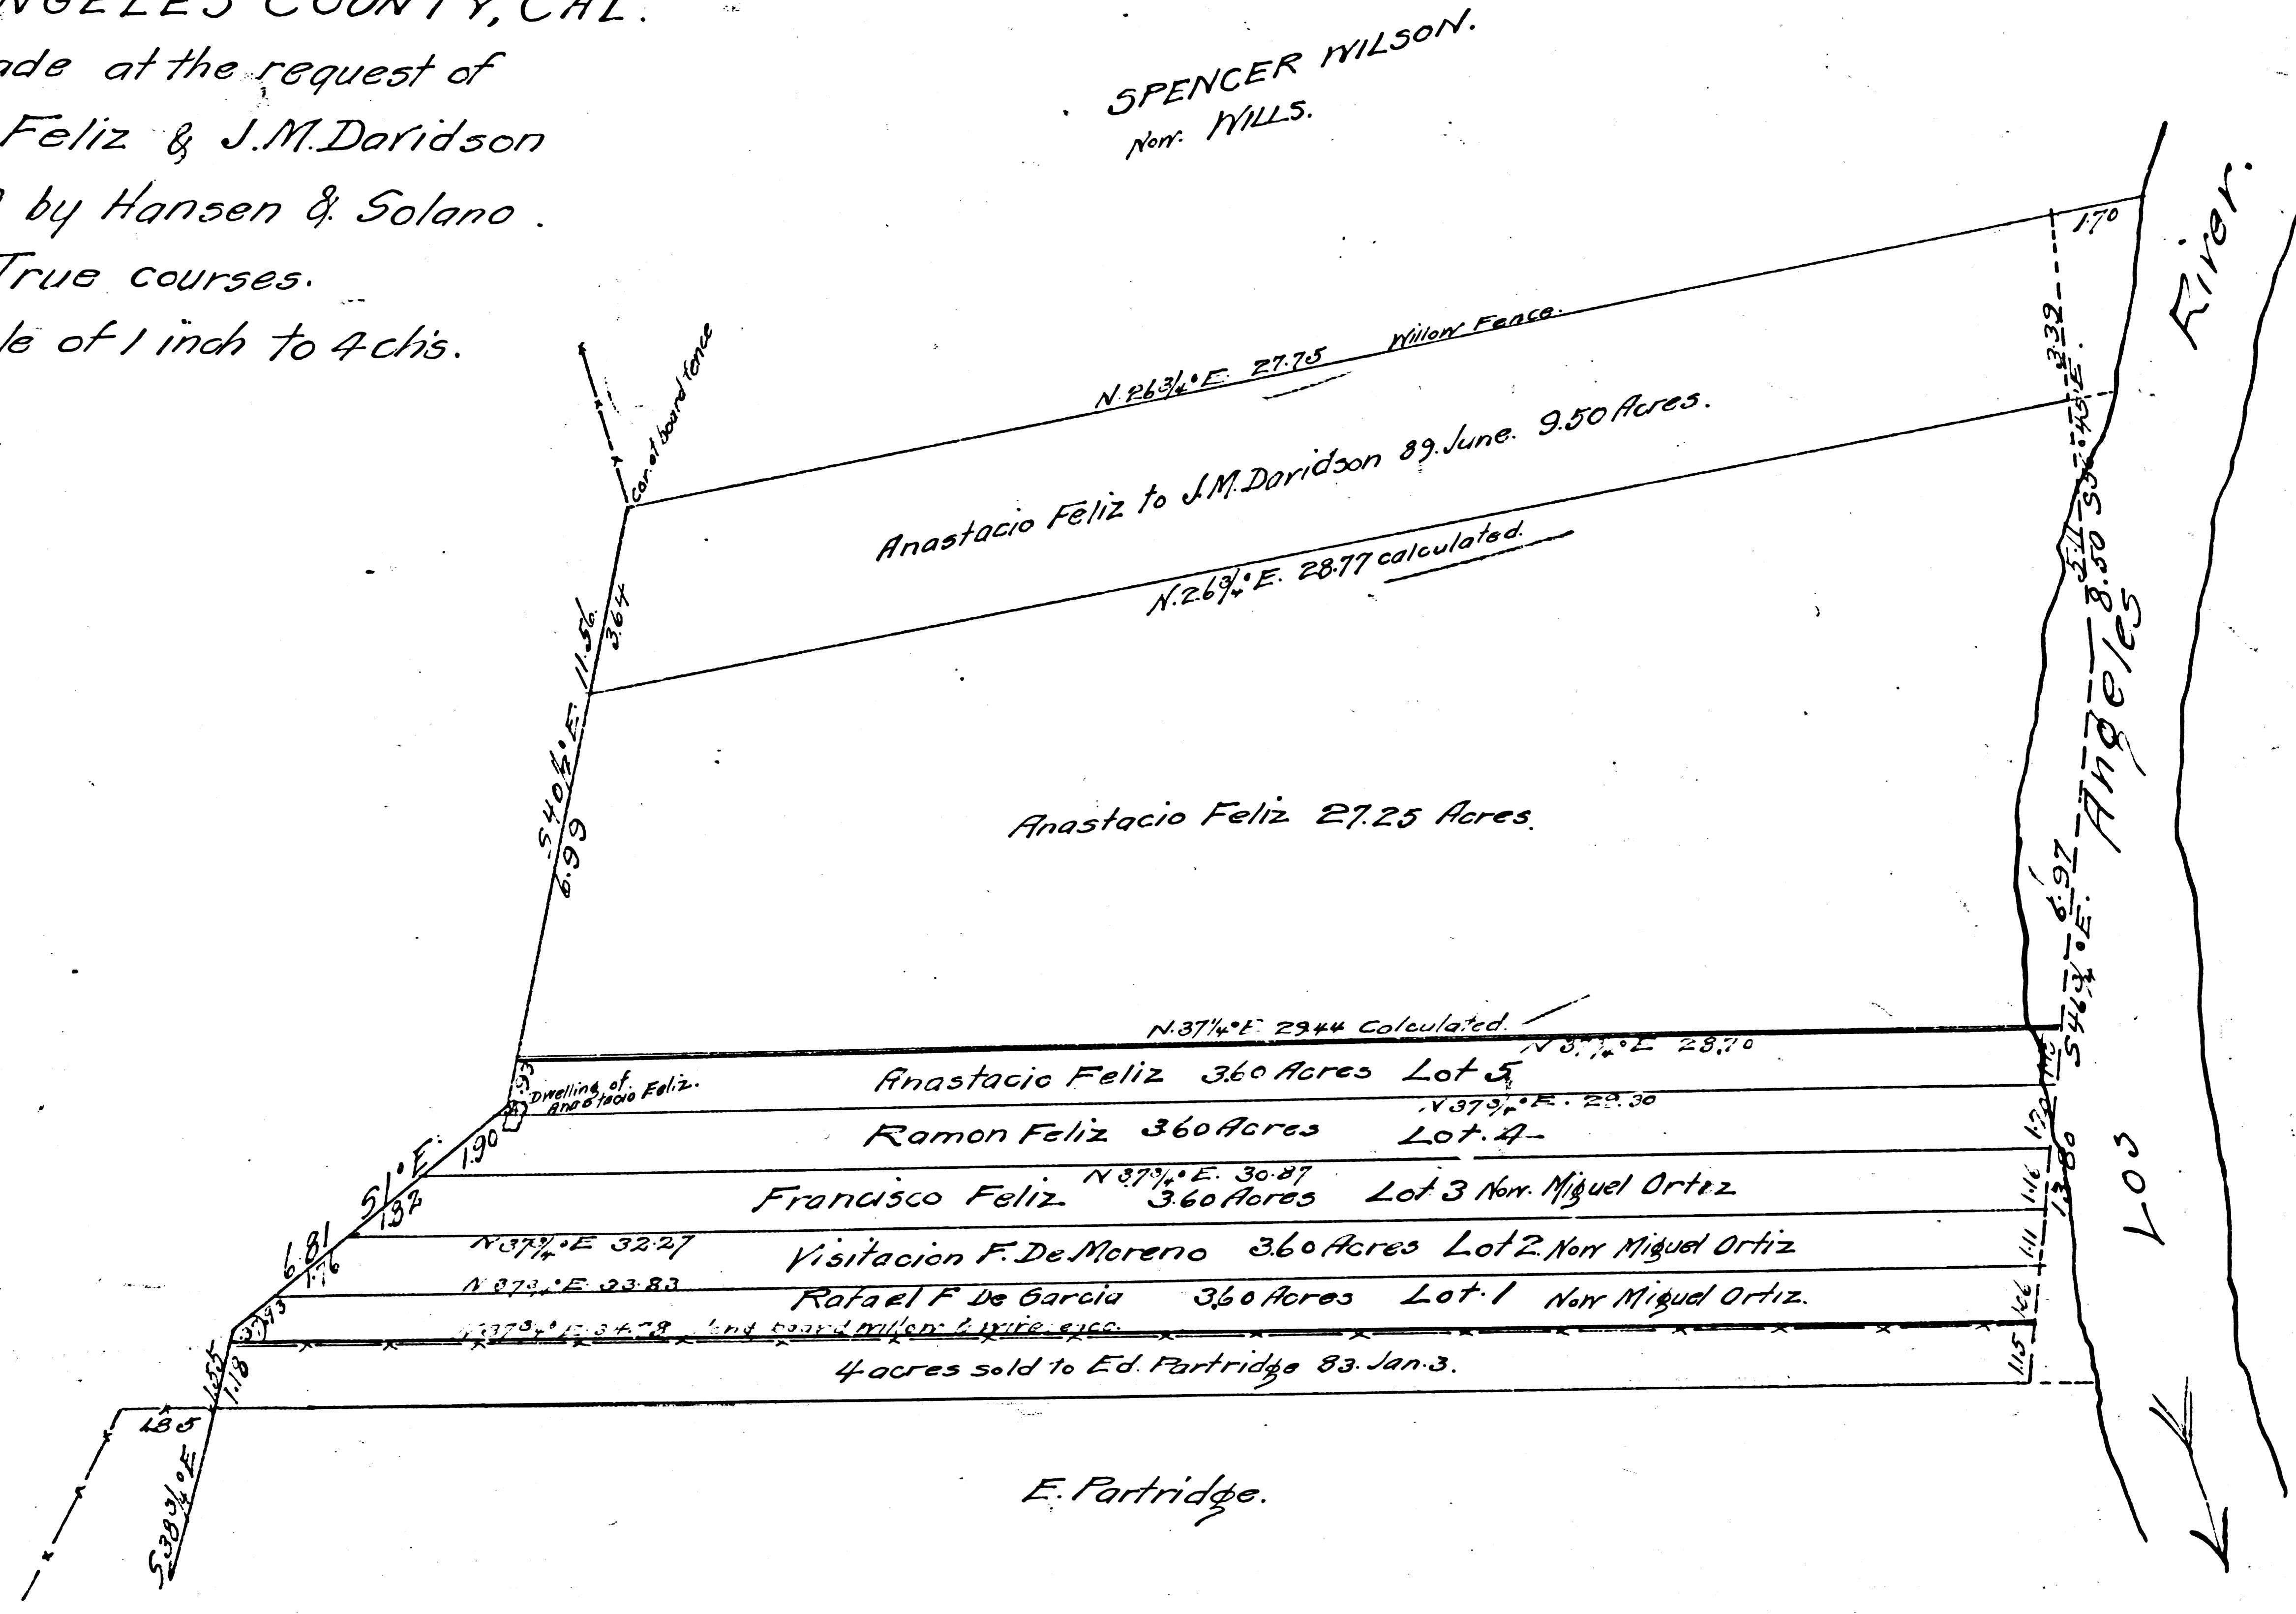 NGELES COUNTY, CAL.
ade at the request of
Feliz & J.M.Davidson
by Hansen & Solano.
True courses.
le of 1 inch to 4 chs.
SPENCER WILSON.
Now. WILLS.
River.
1.70
Cor. of board fence
N.26¾°E. 27.75 Willow Fence.
3.39
Anastacio Feliz to J.M.Davidson 89.June. 9.50 Acres.
N.26¾°E. 28.77 calculated.
5.11
8.50 E.
11.56
3.64
S40½°E.
6.99
Angeles
Anastacio Feliz 27.25 Acres.
6.97
S46¾°E.
N.37¼°E 29.44 Calculated.
E 28.70
.93
Dwelling of
Anastacio Feliz.
Anastacio Feliz 3.60 Acres Lot 5
N37¾°E. 29.30
1.90
Ramon Feliz 360 Acres Lot. 4
1.70
S1°E.
N37¾°E. 30.87
Francisco Feliz 3.60 Acres Lot 3 Now. Miguel Ortiz
1.82
1.16
13.80
Los
6.81
1.76
N37¾°E 32.27
Visitacion F. De Moreno 3.60 Acres Lot 2. Now Miguel Ortiz
1.11
N37¾°E 33.83
.93
Rafael F De Garcia 3.60 Acres Lot.1 Now Miguel Ortiz.
.37
N37¾°E 34.78 board willow & wire fence.
1.55
1.18
4 acres sold to Ed. Partridge 83. Jan.3.
1.15
1.85
S38¾°E
E. Partridge.